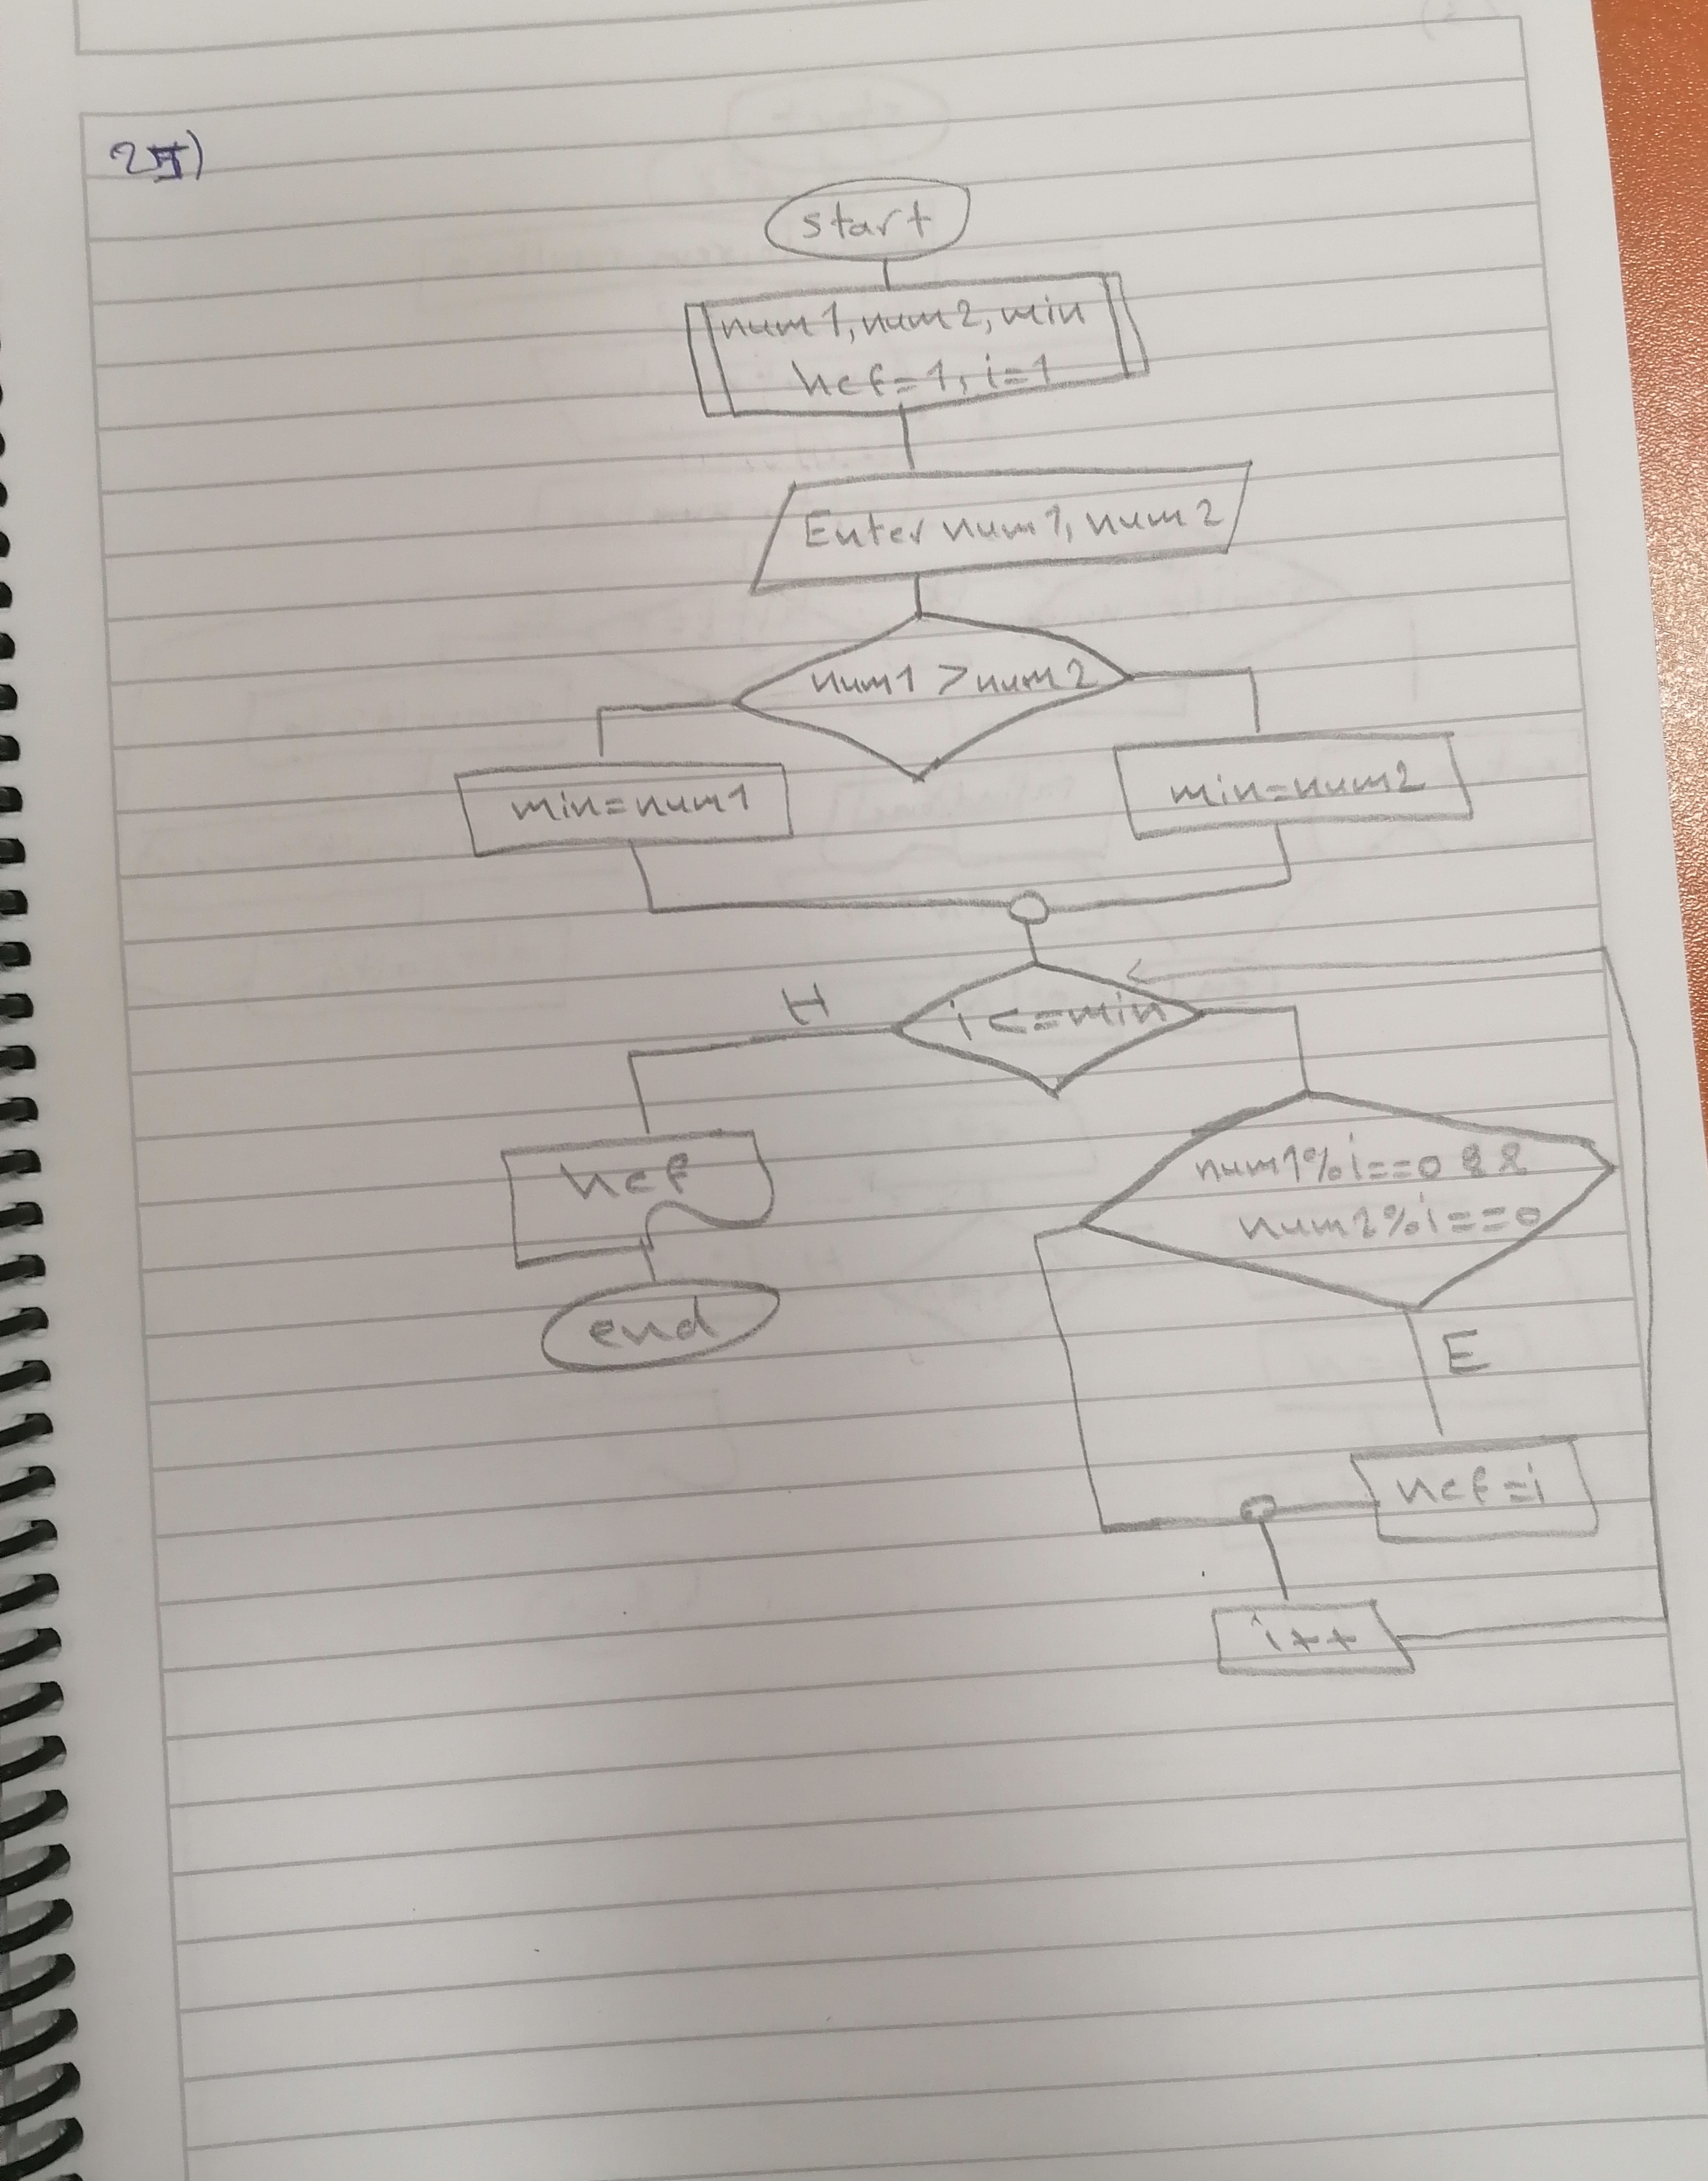 start
num1, num2, min
hcf=1, i=1
Enter num1, num2
num1 > num2
min=num1
min=num2
H
i <= min
hcf
num1%i==0 &&
num2%i==0
end
E
hcf=i
i++